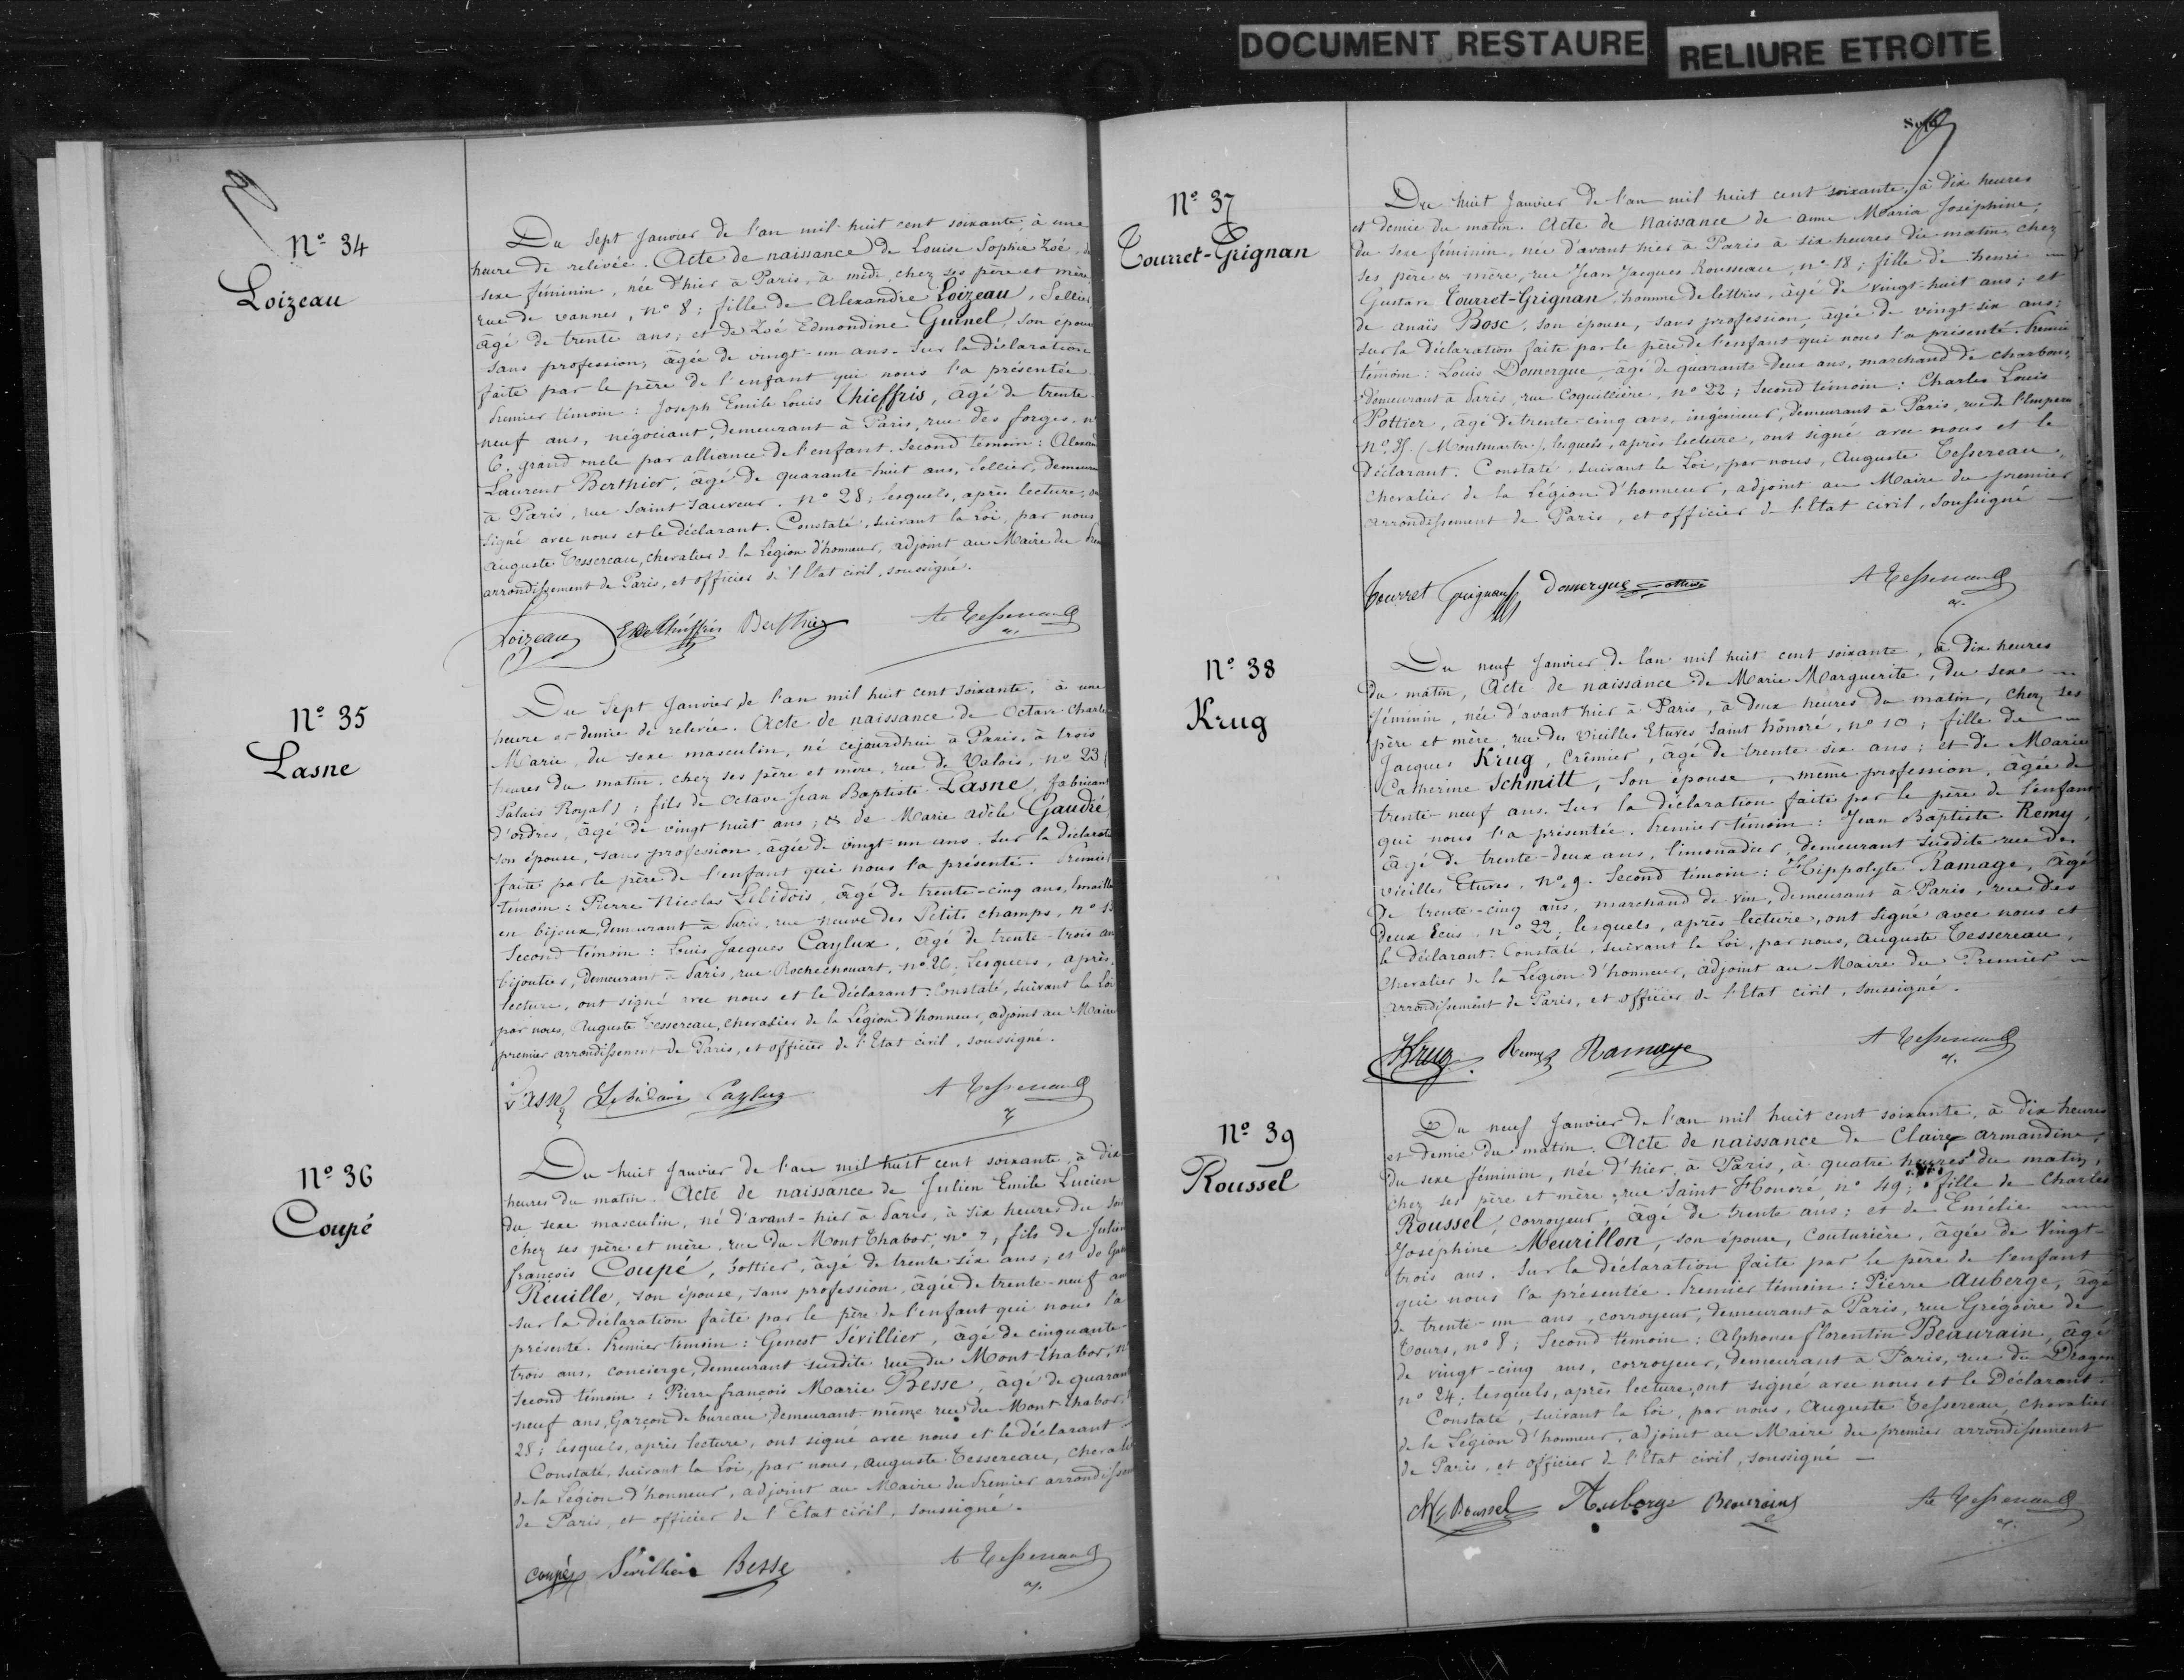 DOCUMENT RESTAURE
RELIURE ETROITE
Nº 34
Loizeau
Du Sept Janvier de l'an mil huit cent soixante, à une
heure de relevée. Acte de naissance de Louise Sophie Zoé, du
sexe féminin, née d'hier à Paris, à midi, chez ses père et mère
rue de vannes, nº 8; fille de Alexandre Loizeau, Sellier,
âgé de trente ans; et de Zoé Edmondine Guinel, son épouse
sans profession, âgée de vingt-un ans. Sur la déclaration
faite par le père de l'enfant qui nous l'a présentée.
Premier témoin: Joseph Emile Louis Thieffris, âgé de trente-
neuf ans, négociant, demeurant à Paris, rue des forges, nº
6. grand oncle par alliance de l'enfant. Second témoin:
Laurent Berthier, âgé de quarante-huit ans, Sellier, demeurant
à Paris, rue Saint Sauveur, nº 28; lesquels, après lecture, ont
signé avec nous et le déclarant. Constaté, suivant la Loi, par nous
Auguste Tessereau, chevalier de la Légion d'honneur, adjoint au Maire du
arrondissement de Paris, et officier de l'Etat civil, soussigné.
Loizeau Thieffris Berthier A Tessereau
Nº 35
Lasne
Du Sept Janvier de l'an mil huit cent soixante, à une
heure et demie de relevée. Acte de naissance de Octave Charles
Marie, du sexe masculin, né cejourdhui à Paris, à trois
heures du matin, chez ses père et mère, rue de Valois, nº 23 (
Palais Royal); fils de Octave Jean Baptiste Lasne, fabricant
d'ordres, âgé de vingt huit ans; et de Marie adèle Gaudré,
son épouse, sans profession, âgée de vingt-un ans. Sur la déclaration
faite par le père de l'enfant qui nous l'a présenté. Premier
témoin: Pierre Nicolas Lebidois, âgé de trente-cinq ans, Emailleur
en bijoux, demeurant à Paris, rue neuve des Petits champs, nº
Second témoin: Louis Jacques Caylux, âgé de trente-trois ans
bijoutier, demeurant à Paris, rue Rochechouart, nº 26, Lesquels, après
lecture, ont signé avec nous et le déclarant. Constaté, suivant la Loi
par nous, Auguste Tessereau, chevalier de la Légion d'honneur, adjoint au Maire
premier arrondissement de Paris, et officier de l'Etat civil, soussigné.
Lasne Lebidois Caylux A Tessereau
Nº 36
Coupé
Du huit Janvier de l'an mil huit cent soixante, à dix
heures du matin. Acte de naissance de Julien Emile Lucien
du sexe masculin, né d'avant-hier à Paris, à six heures du soir
chez ses père et mère, rue du Mont Thabor, nº 7, fils de Julien
françois Coupé, bottier, âgé de trente six ans; et de
Reuille, son épouse, sans profession, âgée de trente-neuf ans
Sur la déclaration faite par le père de l'enfant qui nous l'a
présenté. Premier témoin: Genest Sévillier, âgé de cinquante-
trois ans, concierge, demeurant susdite rue du Mont Thabor, nº
Second témoin: Pierre françois Marie Besse, âgé de quarante
neuf ans, Garçon de bureau, demeurant même rue du Mont Thabor,
28; lesquels, après lecture, ont signé avec nous et le déclarant
Constaté, suivant la Loi, par nous, Auguste Tessereau, chevalier
de la Légion d'honneur, adjoint au Maire du Premier arrondissement
de Paris, et officier de l'Etat civil, soussigné.
Coupé Sévillier Besse A Tessereau
Nº 37
Tourret-Grignan
Du huit Janvier de l'an mil huit cent soixante, à dix heures
et demie du matin. Acte de Naissance de anne Maria Joséphine,
du sexe féminin, née d'avant hier à Paris à six heures du matin, chez
ses père et mère, rue Jean Jacques Rousseau, nº 18; fille de henri
Gustave Tourret-Grignan, homme de lettres, âgé de vingt-huit ans; et
de anaïs Bosc, son épouse, sans profession, âgée de vingt-six ans;
sur la déclaration faite par le père de l'enfant qui nous l'a présenté. Premier
témoin: Louis Domergue, âgé de quarante-deux ans, marchand de charbons,
demeurant à Paris, rue Coquillière, nº 22; Second témoin: Charles Louis
Pottier, âgé de trente-cinq ans, ingénieur, demeurant à Paris, rue de l'Empereur
nº 35 (Montmartre), lesquels, après lecture, ont signé avec nous et le
déclarant. Constaté, suivant la Loi, par nous, Auguste Tessereau,
chevalier de la Légion d'honneur, adjoint au Maire du premier
arrondissement de Paris, et officier de l'Etat civil, soussigné
Tourret Grignan Domergue Pottier A Tessereau
Nº 38
Krug
Du neuf Janvier de l'an mil huit cent soixante, à dix heures
du matin, Acte de naissance de Marie Marguerite, du sexe
féminin, née d'avant hier à Paris, à deux heures du matin, chez ses
père et mère, rue des Vieilles Etuves Saint honoré, nº 10; fille de
Jacques Krug, Crêmier, âgé de trente six ans; et de Marie
Catherine Schmitt, son épouse, même profession, âgée de
trente-neuf ans. Sur la déclaration faite par le père de l'enfant
qui nous l'a présentée. Premier témoin: Jean Baptiste Remy,
âgé de trente-deux ans, limonadier, demeurant susdite rue des
vieilles Etuves, nº 9. Second témoin: Hippolyte Ramage, âgé
de trente-cinq ans, marchand de vin, demeurant à Paris, rue des
deux Ecus, nº 22; lesquels, après lecture, ont signé avec nous et
le déclarant. Constaté, suivant la Loi, par nous, Auguste Tessereau,
Chevalier de la Légion d'honneur, adjoint au Maire du Premier
arrondissement de Paris, et officier de l'Etat civil, soussigné.
Krug Remy Ramage A Tessereau
Nº 39
Roussel
Du neuf Janvier de l'an mil huit cent soixante, à dix heures
et demie du matin. Acte de naissance de Claire armandine,
du sexe féminin, née d'hier, à Paris, à quatre heures du matin,
chez ses père et mère, rue Saint Honoré, nº 49; fille de Charles
Roussel, corroyeur, âgé de trente ans; et de Emélie
Joséphine Meurillon, son épouse, couturière, âgée de Vingt-
trois ans. Sur la déclaration faite par le père de l'enfant
qui nous l'a présentée. Premier témoin: Pierre Auberge, âgé
de trente-un ans, corroyeur, demeurant à Paris, rue Grégoire de
Tours, nº 8; Second témoin: Alphonse florentin Beaurain, âgé
de vingt-cinq ans, corroyeur, demeurant à Paris, rue du Dragon
nº 24; lesquels, après lecture, ont signé avec nous et le Déclarant.
Constaté, suivant la Loi, par nous, Auguste Tessereau, chevalier
de la Légion d'honneur, adjoint au Maire du premier arrondissement
de Paris, et officier de l'Etat civil, soussigné
Ch Roussel Auberge Beaurain A Tessereau